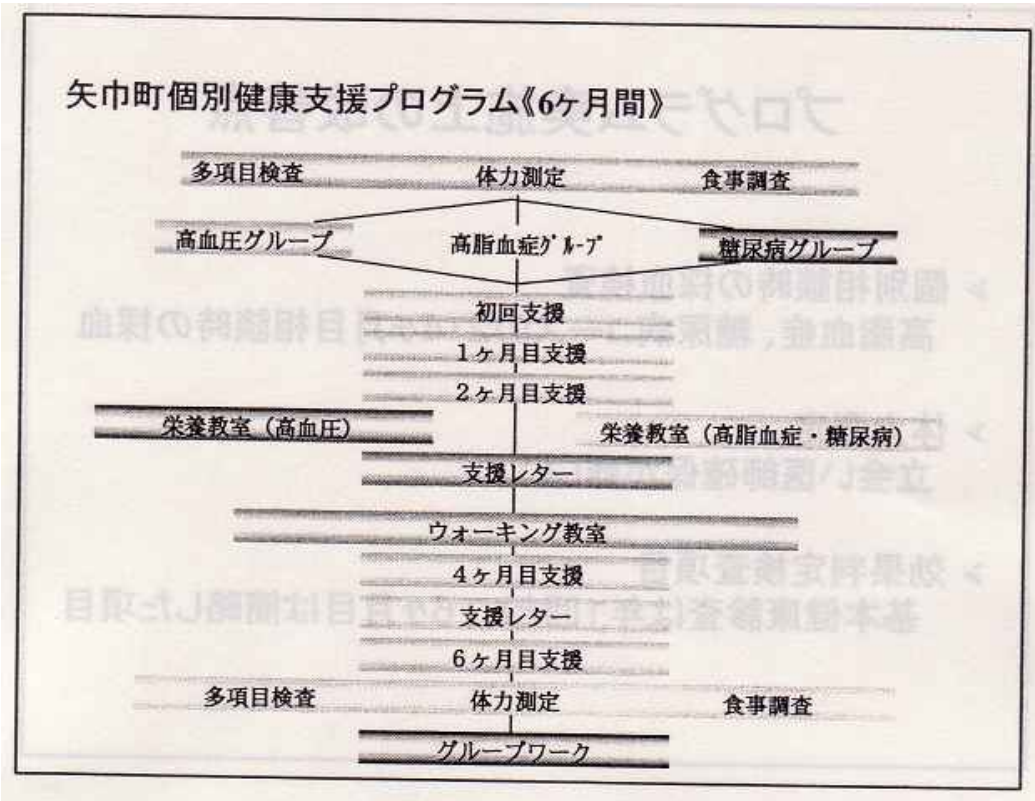 矢巾町個別健康支援プログラム《6ヶ月間》
多項目検査 体力測定 食事調査
高血圧グループ 高脂血症グループ 糖尿病グループ
初回支援
1ヶ月目支援
2ヶ月目支援
栄養教室（高血圧） 栄養教室（高脂血症・糖尿病）
支援レター
ウォーキング教室
4ヶ月目支援
支援レター
6ヶ月目支援
多項目検査 体力測定 食事調査
グループワーク